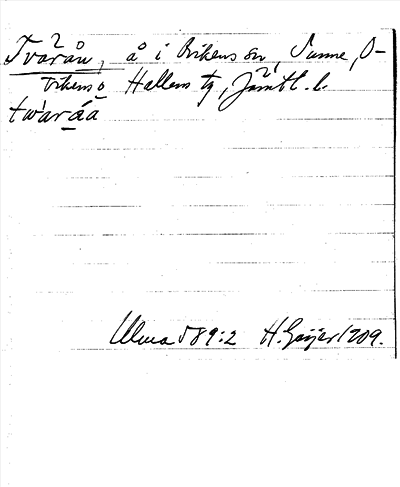 Tvärån, å i Vikens sn, Sunne, O-
vikens o Hallens tg, Jämtl. l.
twä̀rä́ä
Ulma 589:2 H. Geijer 1909.